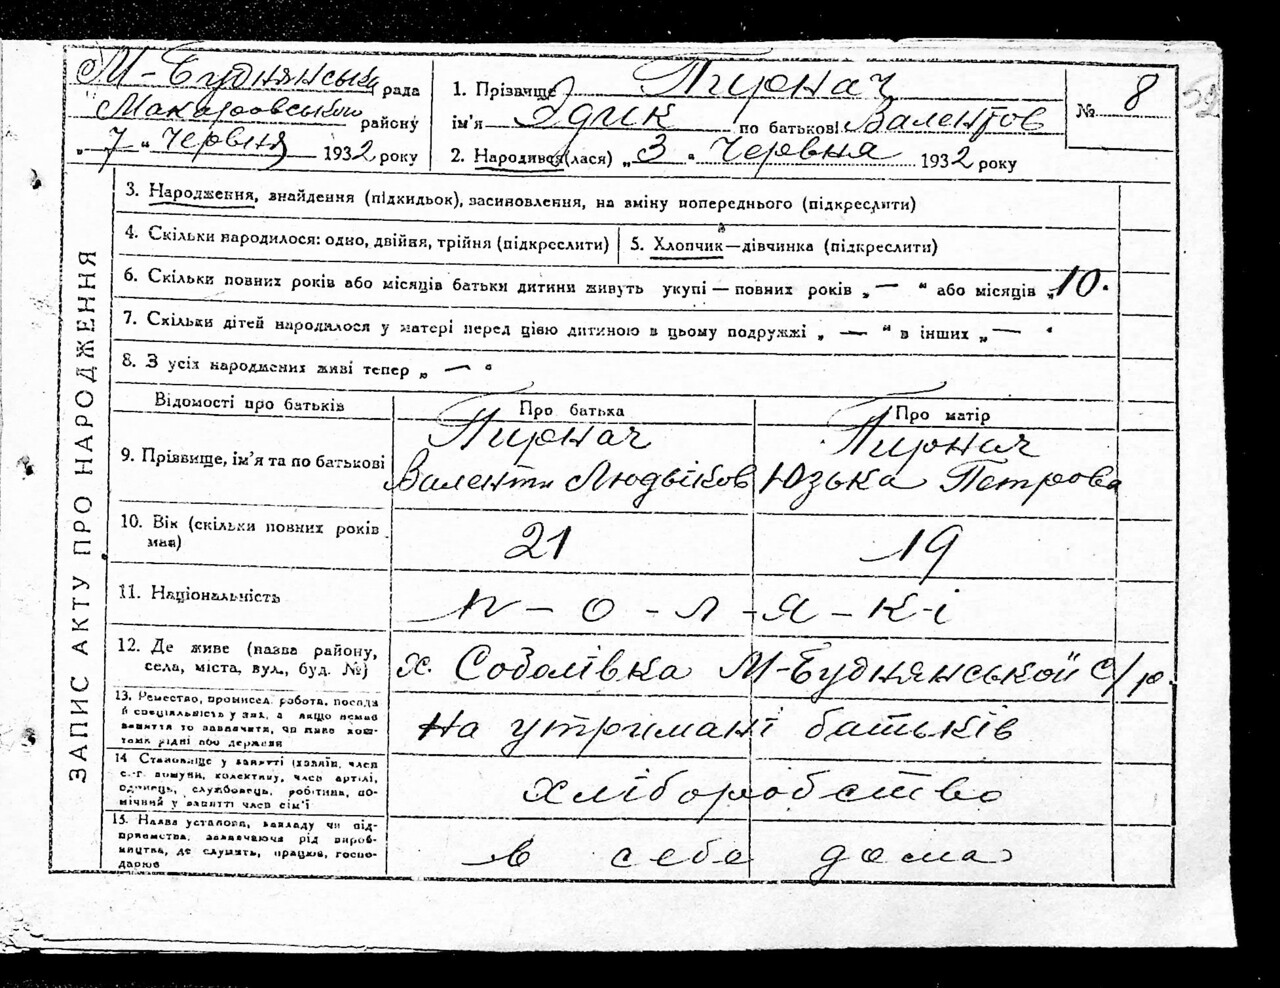 М-Буднянська рада
Макаровського району
„ 7 " Червня 1932 року
1. Прізвище Пирнач
ім'я Эдик по батькові Валентов
2. Народився(лася) „ 3 " Червня 1932 року
№ 8
ЗАПИС АКТУ ПРО НАРОДЖЕННЯ
3. Народження, знайдення (підкидьок), засиновлення, на зміну попереднього (підкреслити)
4. Скільки народилося: одно, двійня, трійня (підкреслити)
5. Хлопчик—дівчинка (підкреслити)
6. Скільки повних років або місяців батьки дитини живуть укупі — повних років „ — " або місяців „ 10.
7. Скільки дітей народилося у матері перед цією дитиною в цьому подружжі „ — " в інших „ — "
8. З усіх народжених живі тепер „ — "
Відомості про батьків
Про батька
Про матір
9. Прізвище, ім'я та по батькові
Пирнач
Валентин Людвіков
Пирнач
Юзька Петрова
10. Вік (скільки повних років
має)
21
19
11. Національність
п - о - л - я - к - і
12. Де живе (назва району,
села, міста, вул., буд. №)
х. Соболівка М-Буднянськой с/р.
13. Ремество, промисел, робота, посада
й спеціяльність у них, а якщо немає
заняття то зазначити, чи живе кош-
том рідні або держави
На утримані батьків
14 Становище у занятті (хазяїн, член
с.-г. комуни, колективу, член артілі,
одинець, службовець, робітник, по-
мічний у занятті член сім'ї
хліборобство
15. Назва установи, закладу чи під-
приємства, зазначаючи рід вироб-
ництва, де служать, працює, госпо-
дарює
в себе дома